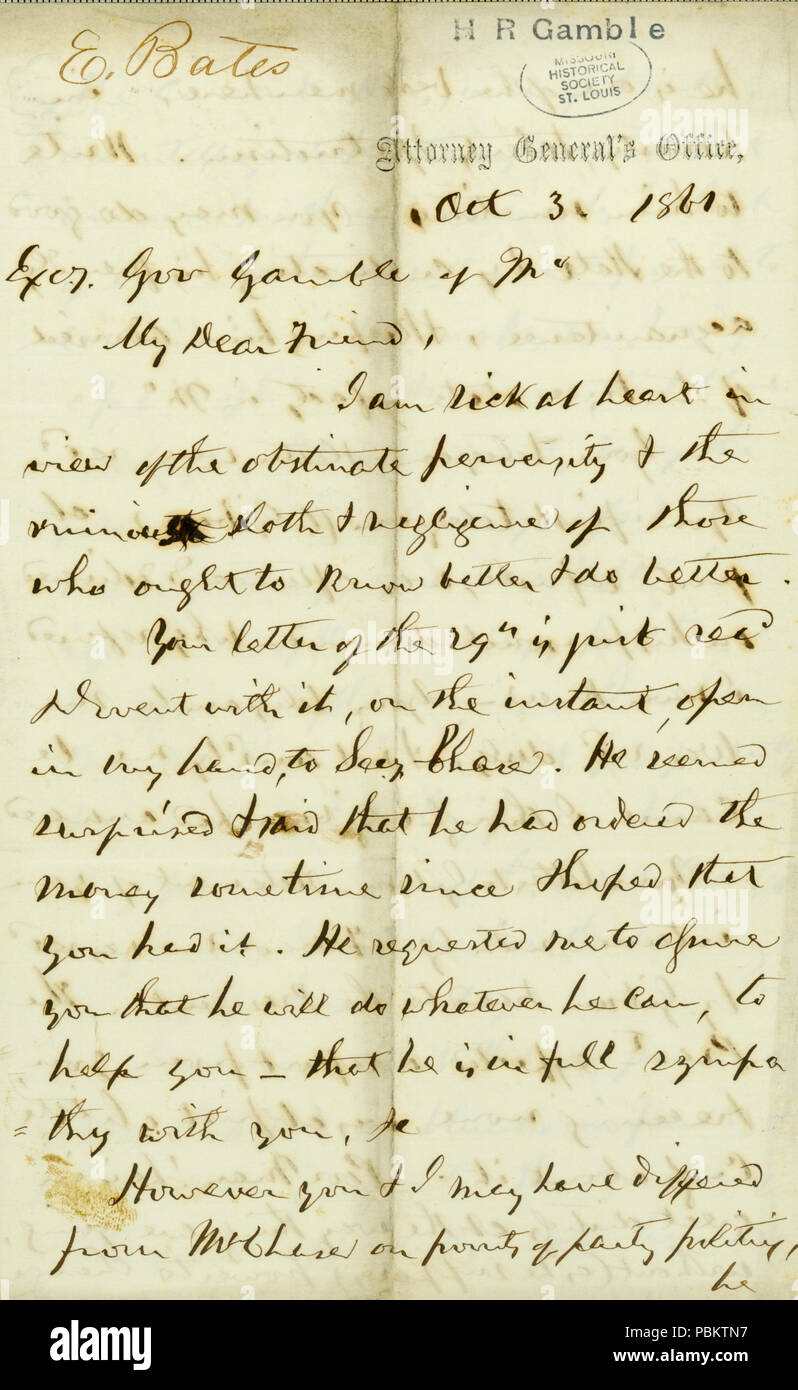 E. Bates
H R Gamble
MISSOURI
HISTORICAL
SOCIETY
ST. LOUIS
Attorney General's Office,
Oct 3. 1861
Excy. Gov Gamble of Mo
My Dear Friend,
I am sick at heart in
view of the obstinate perversity & the
ruinous sloth & negligence of those
who ought to know better & do better.
Your letter of the 29th is just recd
& I went with it, on the instant, open
in my hand, to Secy Chase. He seemed
surprised & said that he had ordered the
money sometime since & hoped that
you had it. He requested me to assure
you that he will do whatever he can, to
help you – that he is in full sympa
= thy with you, &c
However you & I may have differed
from Mr Chase on points of party politics,
he
alamy
Image ID: PBKTN7
www.alamy.com